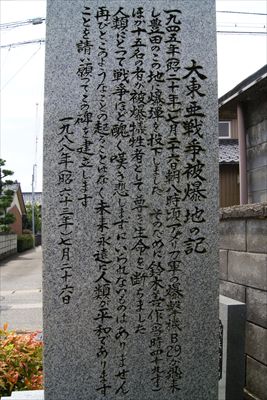 大東亜戦争被爆地の記
一九四五年昭二十年七月二十六朝八時頃アメリカ軍の爆撃機B29が飛来
し豊田のこの地に爆弾を投下しました そのために鈴木喜作(当時四十九才)
ほか十五名の者が被爆犠牲者として尊い生命を断ちました
人類にとって戦争ほど醜く嘆き悲しますにいられないものはありません
再びこのようなことの起ることはなく未来永遠に人類が平和であります
ことを請い願てこの碑を建立します
一九八八年昭六十三年七月二十六日